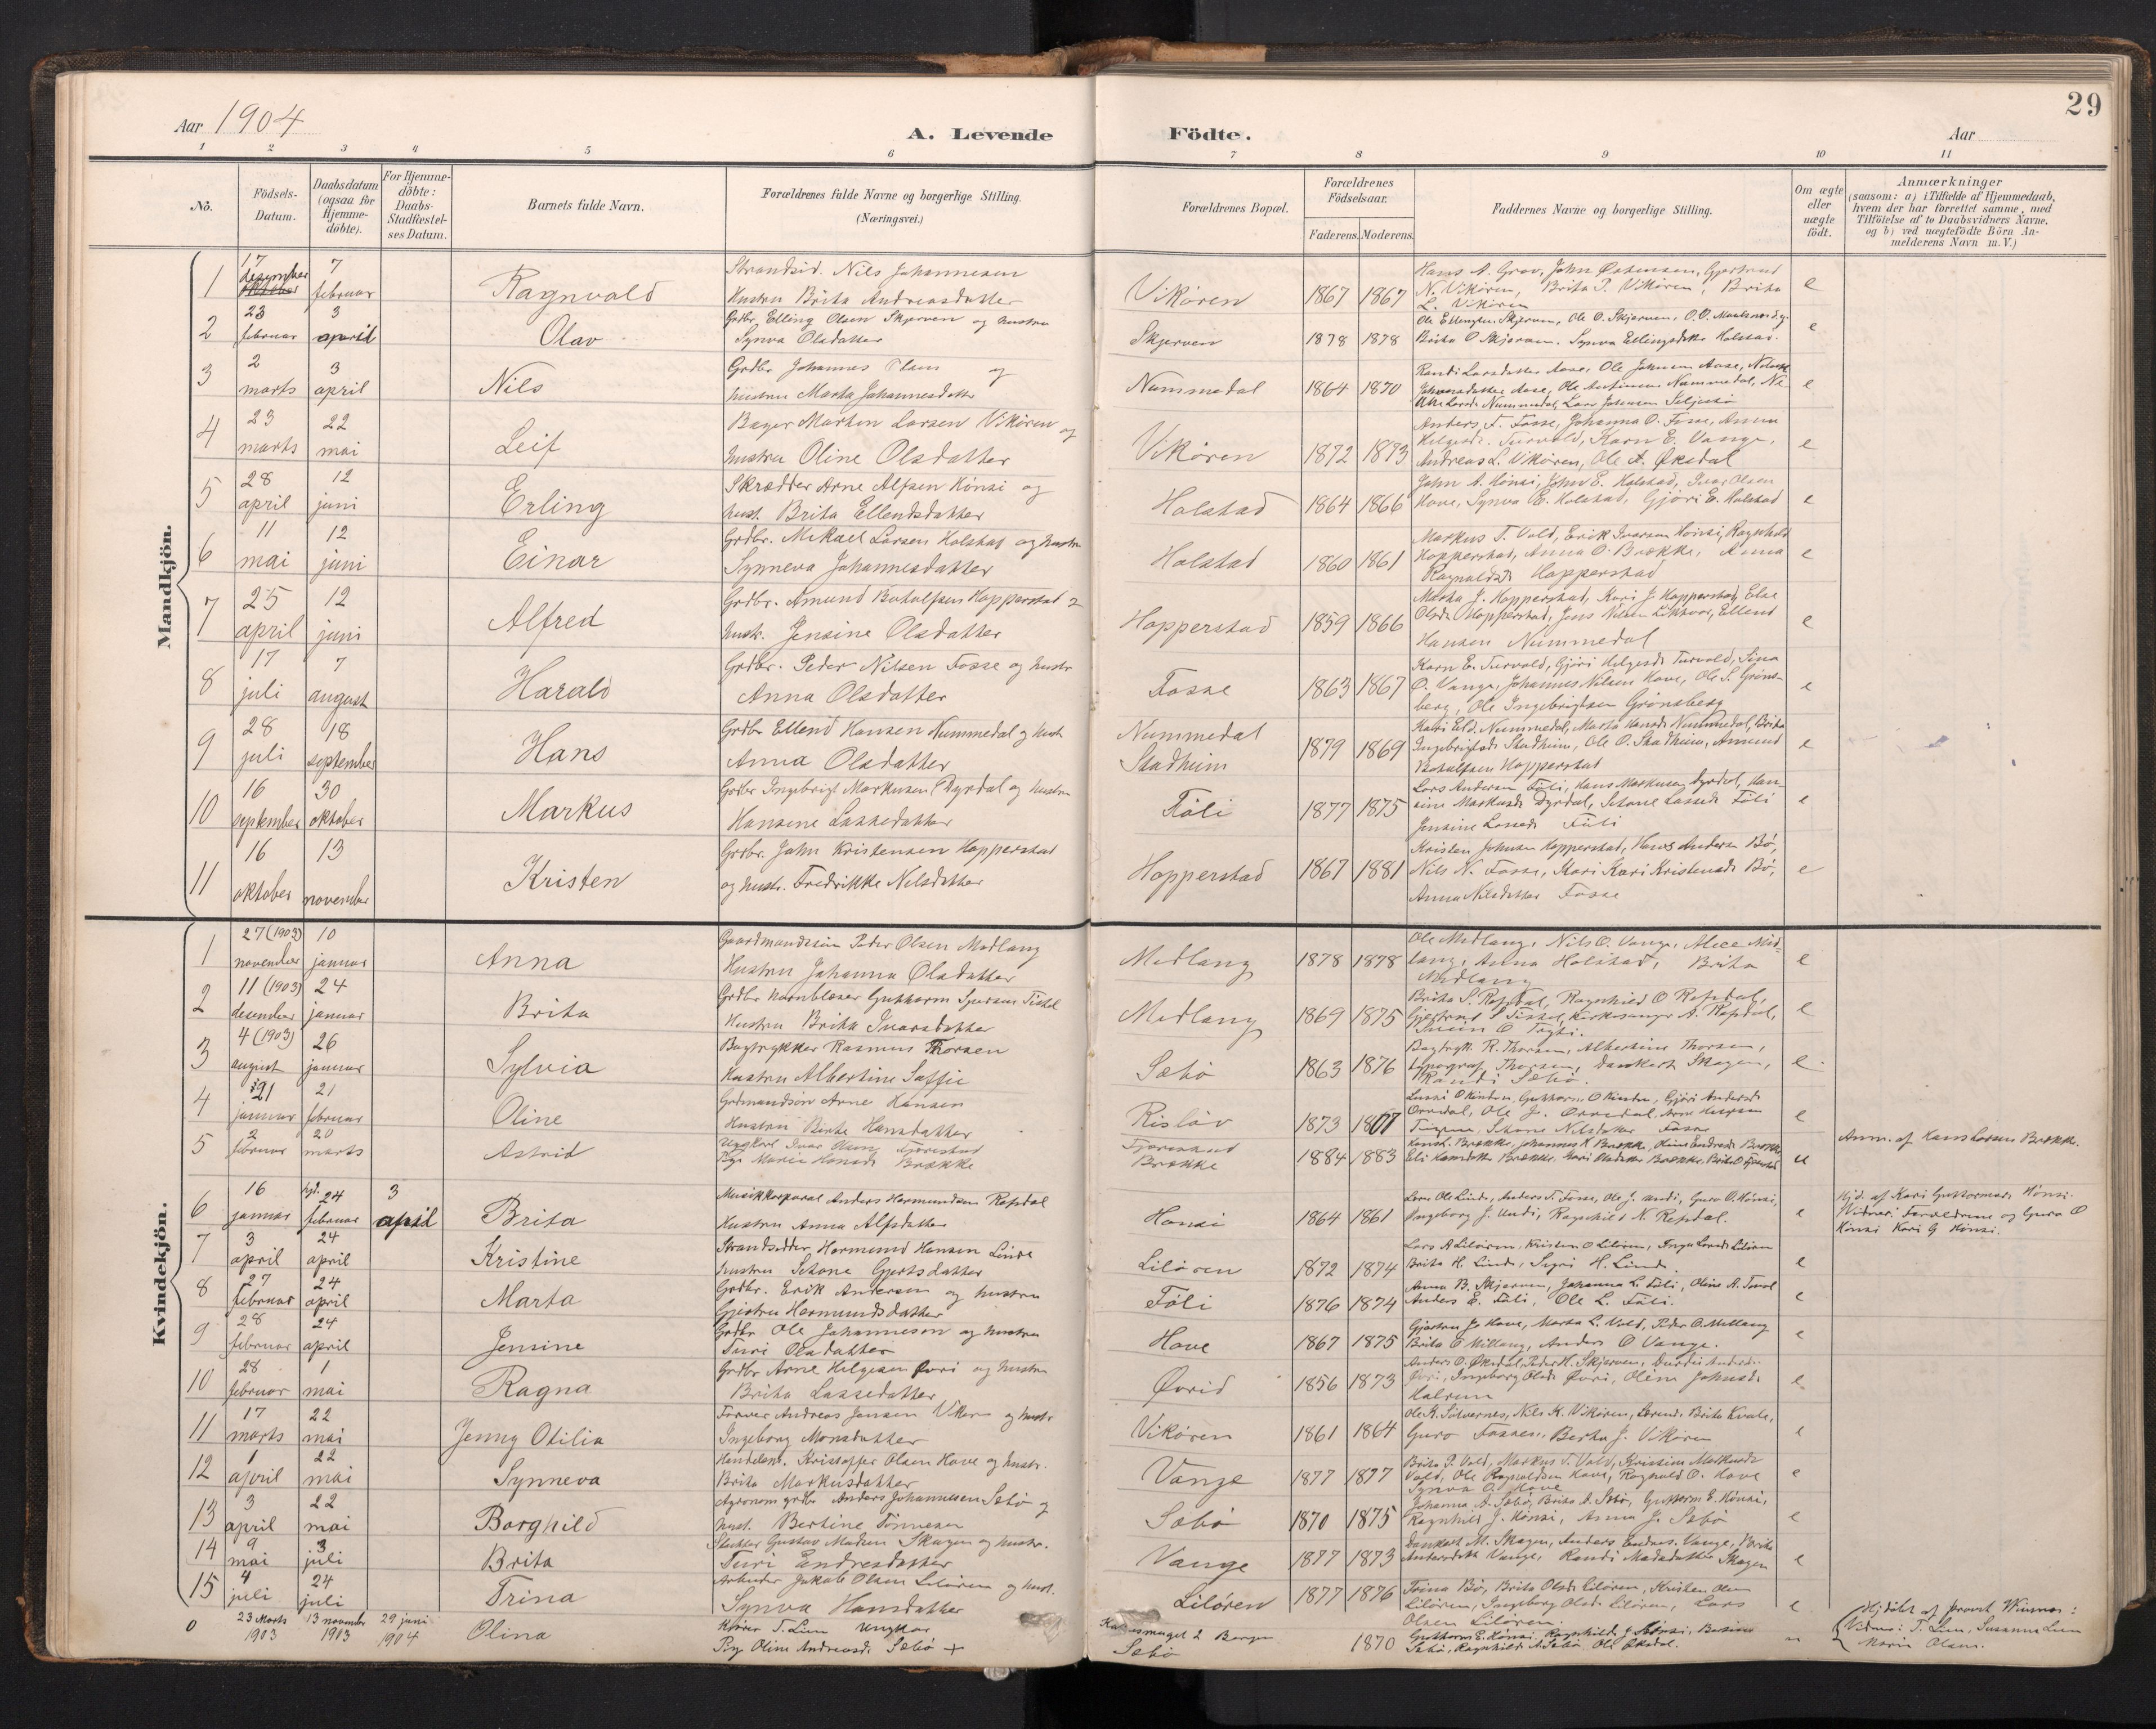 29
Aar 1904
A. Levende Födte.
Aar
1 2 3 4 5 6 7 8 9 10 11
No.
Födsels-
Datum.
Daabsdatum
(ogsaa for
Hjemme-
döbte).
For Hjemme-
döbte:
Daabs-
Stadfæstel-
ses Datum.
Barnets fulde Navn.
Forældrenes fulde Navne og borgerlige Stilling.
(Næringsvei.)
Forældrenes Bopæl.
Forældrenes
Födselsaar.
Faderens. Moderens.
Faddernes Navne og borgerlige Stilling.
Om ægte
eller
uægte
födt.
Anmærkninger
(saasom: a) i Tilfælde af Hjemmedaab,
hvem der har forrettet samme, med
Tilföielse af to Daabsvidners Navne.
og b) ved uægtefödte Börn An-
melderens Navn m. V.)
Mandkjön.
1 17 desember 7 februar Ragnvald
Strandsid. Nils Johannesen
Hustru Brita Andreasdatter
Vikøren 1867 1867
Hans A. Grov, John Østensen, Gjertrud
N. Vikøren, Brita P. Vikøren, Brita
L. Vikøren e
2 23 februar 3 april Olav
Grdbr. Elling Olsen Skjerven og hustru
Synva Olsdatter
Skjerven 1878 1878
Brita O Skjerven. Synva Ellingsdatter Holstad. e
3 2 marts 3 april Nils
Grdbr Johannes Olsen og
hustru Marta Johannesdatter
Nummedal 1864 1870
Randi Larsdatter Aase, Ole Johnsen Aase,
e
4 23 marts 22 mai Leif
Bager Marten Larsen Vikøren og
hustru Oline Olsdatter
Vikøren 1872 1873
Anders T. Fosse, Johanna O. Fosse, Anna
Helgesdr. Turvold, Karn E. Vange,
Andreas L. Vikøren, Ole A. Øksdal e
5 28 april 12 juni Erling
Skrædder Arne Alfsen Hønsi og
hust. Brita Ellendsdatter
Holstad 1864 1866
John A. Hønsi, John E. Holstad, Ivar Olsen
Hove, Synva E. Holstad, Gjøri E. Holstad e
6 11 mai 12 juni Einar
Grdbr. Mikael Larsen Holstad og hustru
Synneva Johannesdatter
Holstad 1860 1861
Markus T. Vold, Erik Ivarsen Hønsi, Ragnhild
Hopperstad, Anna O. Brække, Anna
Ragnvaldsd. Hopperstad e
7 25 april 12 juni Alfred
Grdbr. Amund Botolfsen Hopperstad &
hustr. Jensine Olsdatter
Hopperstad 1859 1866
Marta J. Hopperstad, Kari J. Hopperstad, Else
Hansen Nummedal e
8 17 juli 7 august Harald
Grdbr. Peder Nilsen Fosse og hustr
Anna Olsdatter
Fosse 1863 1867
Karn E. Turvold, Gjøri Helgesd. Turvold, Sina
O. Vange, Johannes Nilsen Hove, Ole S. Grøns-
berg, Ole Ingebrigtsen Grønsberg e
9 28 juli 18 september Hans
Grdbr Ellend Hansen Nummedal og hust
Anna Olsdatter
Nummedal
Stadheim 1879 1869
Ingebrigtsd. Stadheim, Ole O. Stadheim, Amund
Botolfsen Hopperstad e
10 16 september 30 oktober Markus
Grdbr Ingebrigt Markusen Dyrdal og hustru
Hansine Lassedatter
Føli 1877 1875
Lars Andersen Føli, Hans Markusen Dyrdal, Han-
sine Markusd. Dyrdal, Setone Lassed. Føli
Jensine Lassed. Føli e
11 16 oktober 13 november Kristen
Grdbr. John Kristensen Hopperstad
og hustr. Fredrikke Nilsdatter
Hopperstad 1867 1881
Kristen Johnsen Hopperstad, Hans Andersen Bø,
Nils N. Fosse, Kari Kari Kristensd. Bø,
Anna Nilsdatter Fosse e
Kvindekjön.
1 27 (1903) november 10 januar Anna
Gaardmandssøn Peder Olsen Medlang
Hustru Johanna Olsdatter
Medlang 1878 1878
Ole Medlang, Nils O. Vange, Alice Med-
lang, Anna Holstad, Brita
Medlang e
2 11 (1903) desember 24 januar Brita
Grdbr Hornblæser Guttorm Tistel
Hustru Brita Ivarsdatter
Medlang 1869 1875
Brita S. Refsdal, Ragnhild O Refsdal,
Gjertrud S Tistel, Kirkesanger A. Refsdal,
e
3 4 (1903) august 26 januar Sylvia
Bogtrykker Rasmus Thorsen
Hustru Albertine Saffie
Sæbø 1863 1876
Bogtryk. R. Thorsen, Albertine Thorsen,
typograf Thorsen, Dankert Skagen,
Randi Sæbø. e
4 21 januar 21 februar Oline
Grdmandsøn Arne Hansen
Hustru Birte Hansdatter
Risløv 1873 1867
e
5 2 februar 20 marts Astrid
Ungkarl Ivar Olsen Fjørestad
Pige Marie Hansd. Brække
Fjørestad
Brække 1884 1883
Hans L. Brække, Johannes H. Brække, Oline Endresd. Brække
u
Anm. af Hans Larsen Brække.
6 16 januar hjd. 24 februar 3 april Brita
Musikkorporal Anders Hermundsen Refsdal
Hustru Anna Alfsdatter
Hønsi 1864 1861
Lars Ole Linde, Anders T. Fosse, Ole J. Undi, Guro O. Hønsi,
Ingeborg J. Undi, Ragnhild N. Refsdal. e
Hjd. af Kari Guttormsd. Hønsi.
Vidner: Forældrene og Guro O
Hønsi Kari G Hønsi.
7 3 april 24 april Kristine
Strandsidder Hermund Hansen Linde
Hustru Setone Gjertsdatter
Liløren 1872 1874
Lars A Liløren, Kristen O Liløren, Inga Larsd. Liløren
Brita H. Linde, Sigri H. Linde e
8 27 februar 24 april Marta
Grdbr. Erik Andersen og hustru
Gjertru Hermundsdatter
Føli 1876 1874
Anna B. Skjerven, Johanna L. Føli,
Anders E. Føli, Ole L. Føli. e
9 28 februar 24 april Jensine
Grdbr Ole Johanneson og hustru
Turi Olsdatter
Hove 1867 1875
Gjertru J. Hove, Marta L. Vold, Peder O. Millang
Brita O Millang, Anders O Vange. e
10 28 februar 1 mai Ragna
Grdbr Arne Helgesen Øvri og hustru
Brita Lassedatter
Øvrid 1856 1873
Anders O. Øksdal, Peder H. Skjerven,
Øvri, Ingeborg Olsd. Øvri, Oline Johnsd.
e
11 17 marts 22 mai Jenny Otilia
Farver Andreas Jensen Vikøren og hustr
Ingeborg Monsdatter
Vikøren 1861 1864
Guro Fosse, Berta J. Vikøren e
12 1 april 22 mai Synneva
Handelsm. Kristoffer Olsen Hove og hustr.
Brita Markusdatter
Vange 1877 1877
Brita P. Vold, Markus T. Vold, Kristine Markusd.
Vold, Ole Ragnvaldsen Hove, Ragnvald O. Hove
Synva O. Hove e
13 3 april 22 mai Borghild
Agronom grdbr Anders Johannesen Sæbø og
hust. Bertine Tønnesen
Sæbø 1870 1875
Johanna A. Sæbø, Brita A. Sæbø, Guttorm E. Hønsi,
Ragnhild J. Hønsi, Anna J. Sæbø e
14 9 mai 3 juli Brita
Gustav Madsen Skagen og hustr.
Turi Endresdatter
Vange 1877 1873
Dankert M. Skagen, Anders Endres. Vange, Brita
Andersdatt. Vange, Randi Madsdatter Skagen e
15 4 juli 24 juli Trina
Arbeider Jakob Olsen Liløren og hust.
Synva Hansdatter
Liløren 1877 1876
Trina Bø, Brita Olsd. Liløren, Kristen Olsen
Liløren, Ingeborg Olsd. Liløren, Lars
Olsen Liløren. e
0 23 Marts 1903 13 november 1903 29 juni 1904 Olina
T. Lien Ungkar
Pige Oline Andreasd. Sæbø +
2 Bergen
Sæbø 1870
Guttorm E. Hønsi, Ragnhild J. Hønsi,
Sæbø, Ragnhild A. Sæbø, Ole Øksdal. u
Hjdøbt af provst
Vidner: T. Lien, Susanna Lien
Marie Olsen.